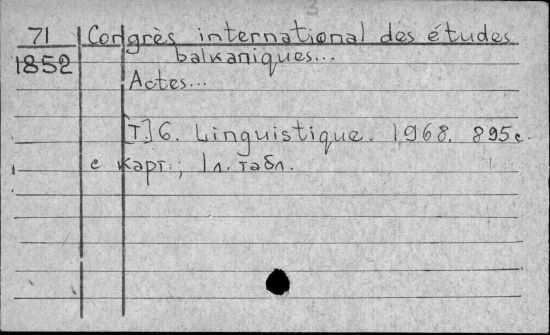 3
71 Congrès international des études
1852 balkaniques...
Actes...
[T] 6. Linguistique. 1968. 895 с.
с карт.; 1 л. табл.